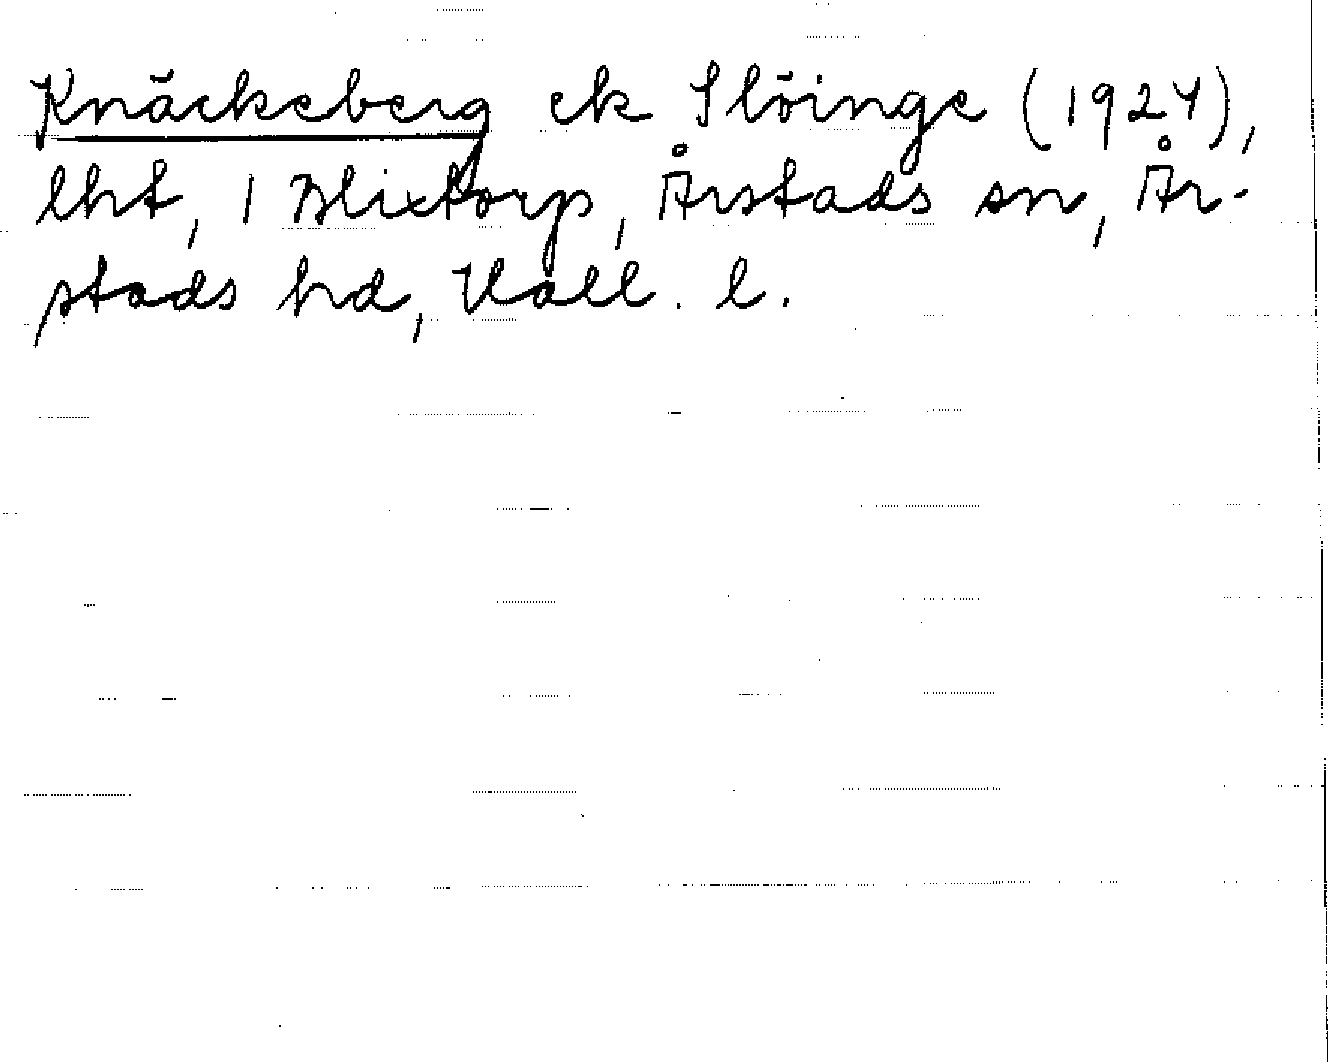 Knäckeberg ek Slöinge (1924),
lht, 1 Blixtorp, Årstads sn, År-
stads hd, Hall. l.